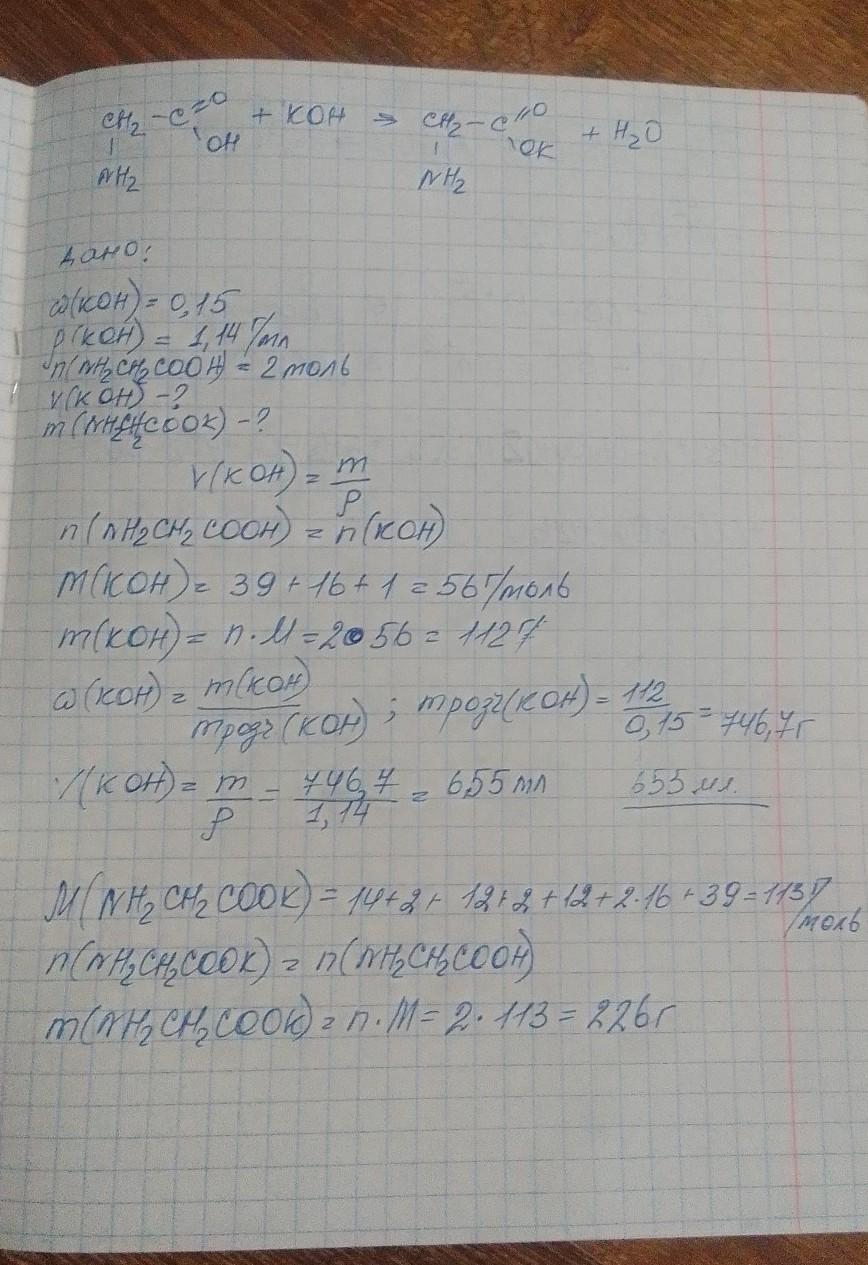 CH₂-C=O + KOH → CH₂-C=O + H₂O
| \OH | \OK
NH₂ NH₂
Дано:
ω(KOH) = 0,15
ρ(KOH) = 1,14 г/мл
n(NH₂CH₂COOH) = 2 моль
V(KOH) -?
m(NH₂CH₂COOK) -?
V(KOH) = m/ρ
n(NH₂CH₂COOH) = n(KOH)
M(KOH) = 39+16+1 = 56 г/моль
m(KOH) = n·M = 2·56 = 112 г
ω(KOH) = m(KOH)/mрозч(KOH) ; mрозч(KOH) = 112/0,15 = 746,7 г
V(KOH) = m/ρ = 746,7/1,14 = 655 мл 655 мл.
M(NH₂CH₂COOK) = 14+2+ 12+2+12+2·16+39 = 113 г/моль
n(NH₂CH₂COOK) = n(NH₂CH₂COOH)
m(NH₂CH₂COOK) = n·M = 2·113 = 226 г